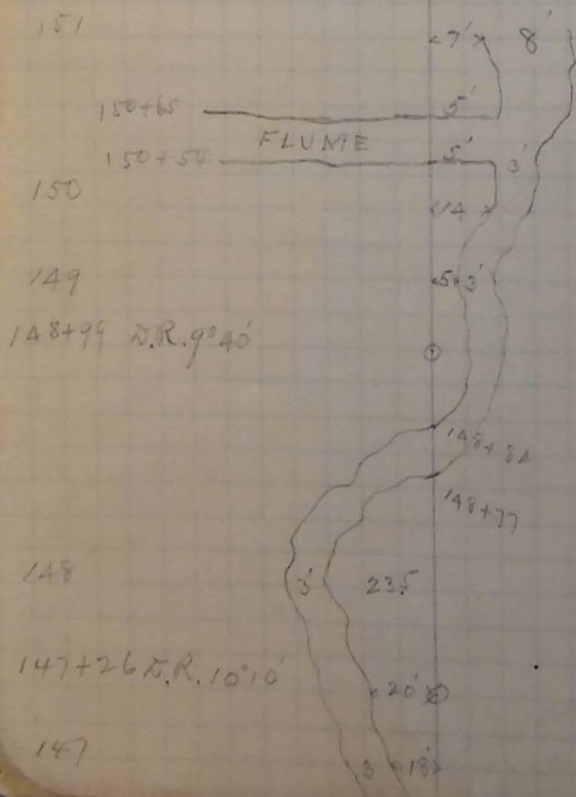 151 7' 8'
150+65 5'
FLUME
150+54 5' 3'
150 14
149 5 3'
148+99 D.R. 9° 40'
148+84
148+77
148 3' 235
147+26 D.R. 10° 10' 20'
147 3 18'